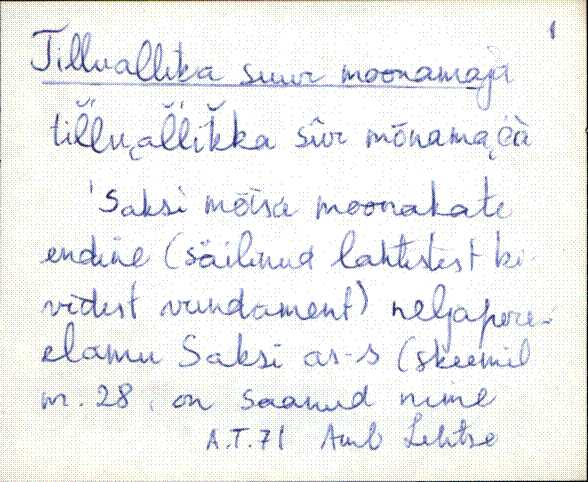 1
Tillvallika suur moonamaja
tĭllva̮ĺlĭkka sûr mōnamai̮à
'Saksi mõisa moonakate
endine (säilinud lahtistest ki-
videst vundament) neljapere-
elamu Saksi as-s (skeemil
nr. 28. on saanud nime
A.T.71 Amb Lehtse